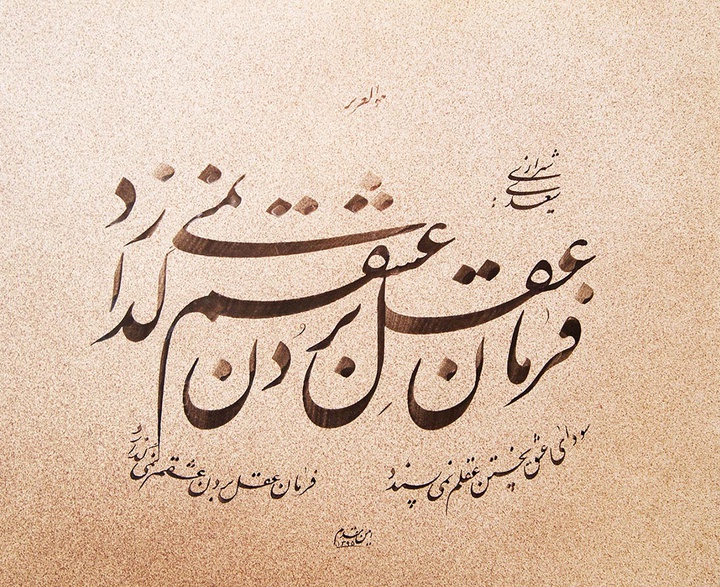 هوالعزیز
سعدی شیرازی
فرمان عقل بردن عشقم نمی گذارد
سودای عشق پختن عقلم نمی پسندد
فرمان عقل بردن عشقم نمی گذارد